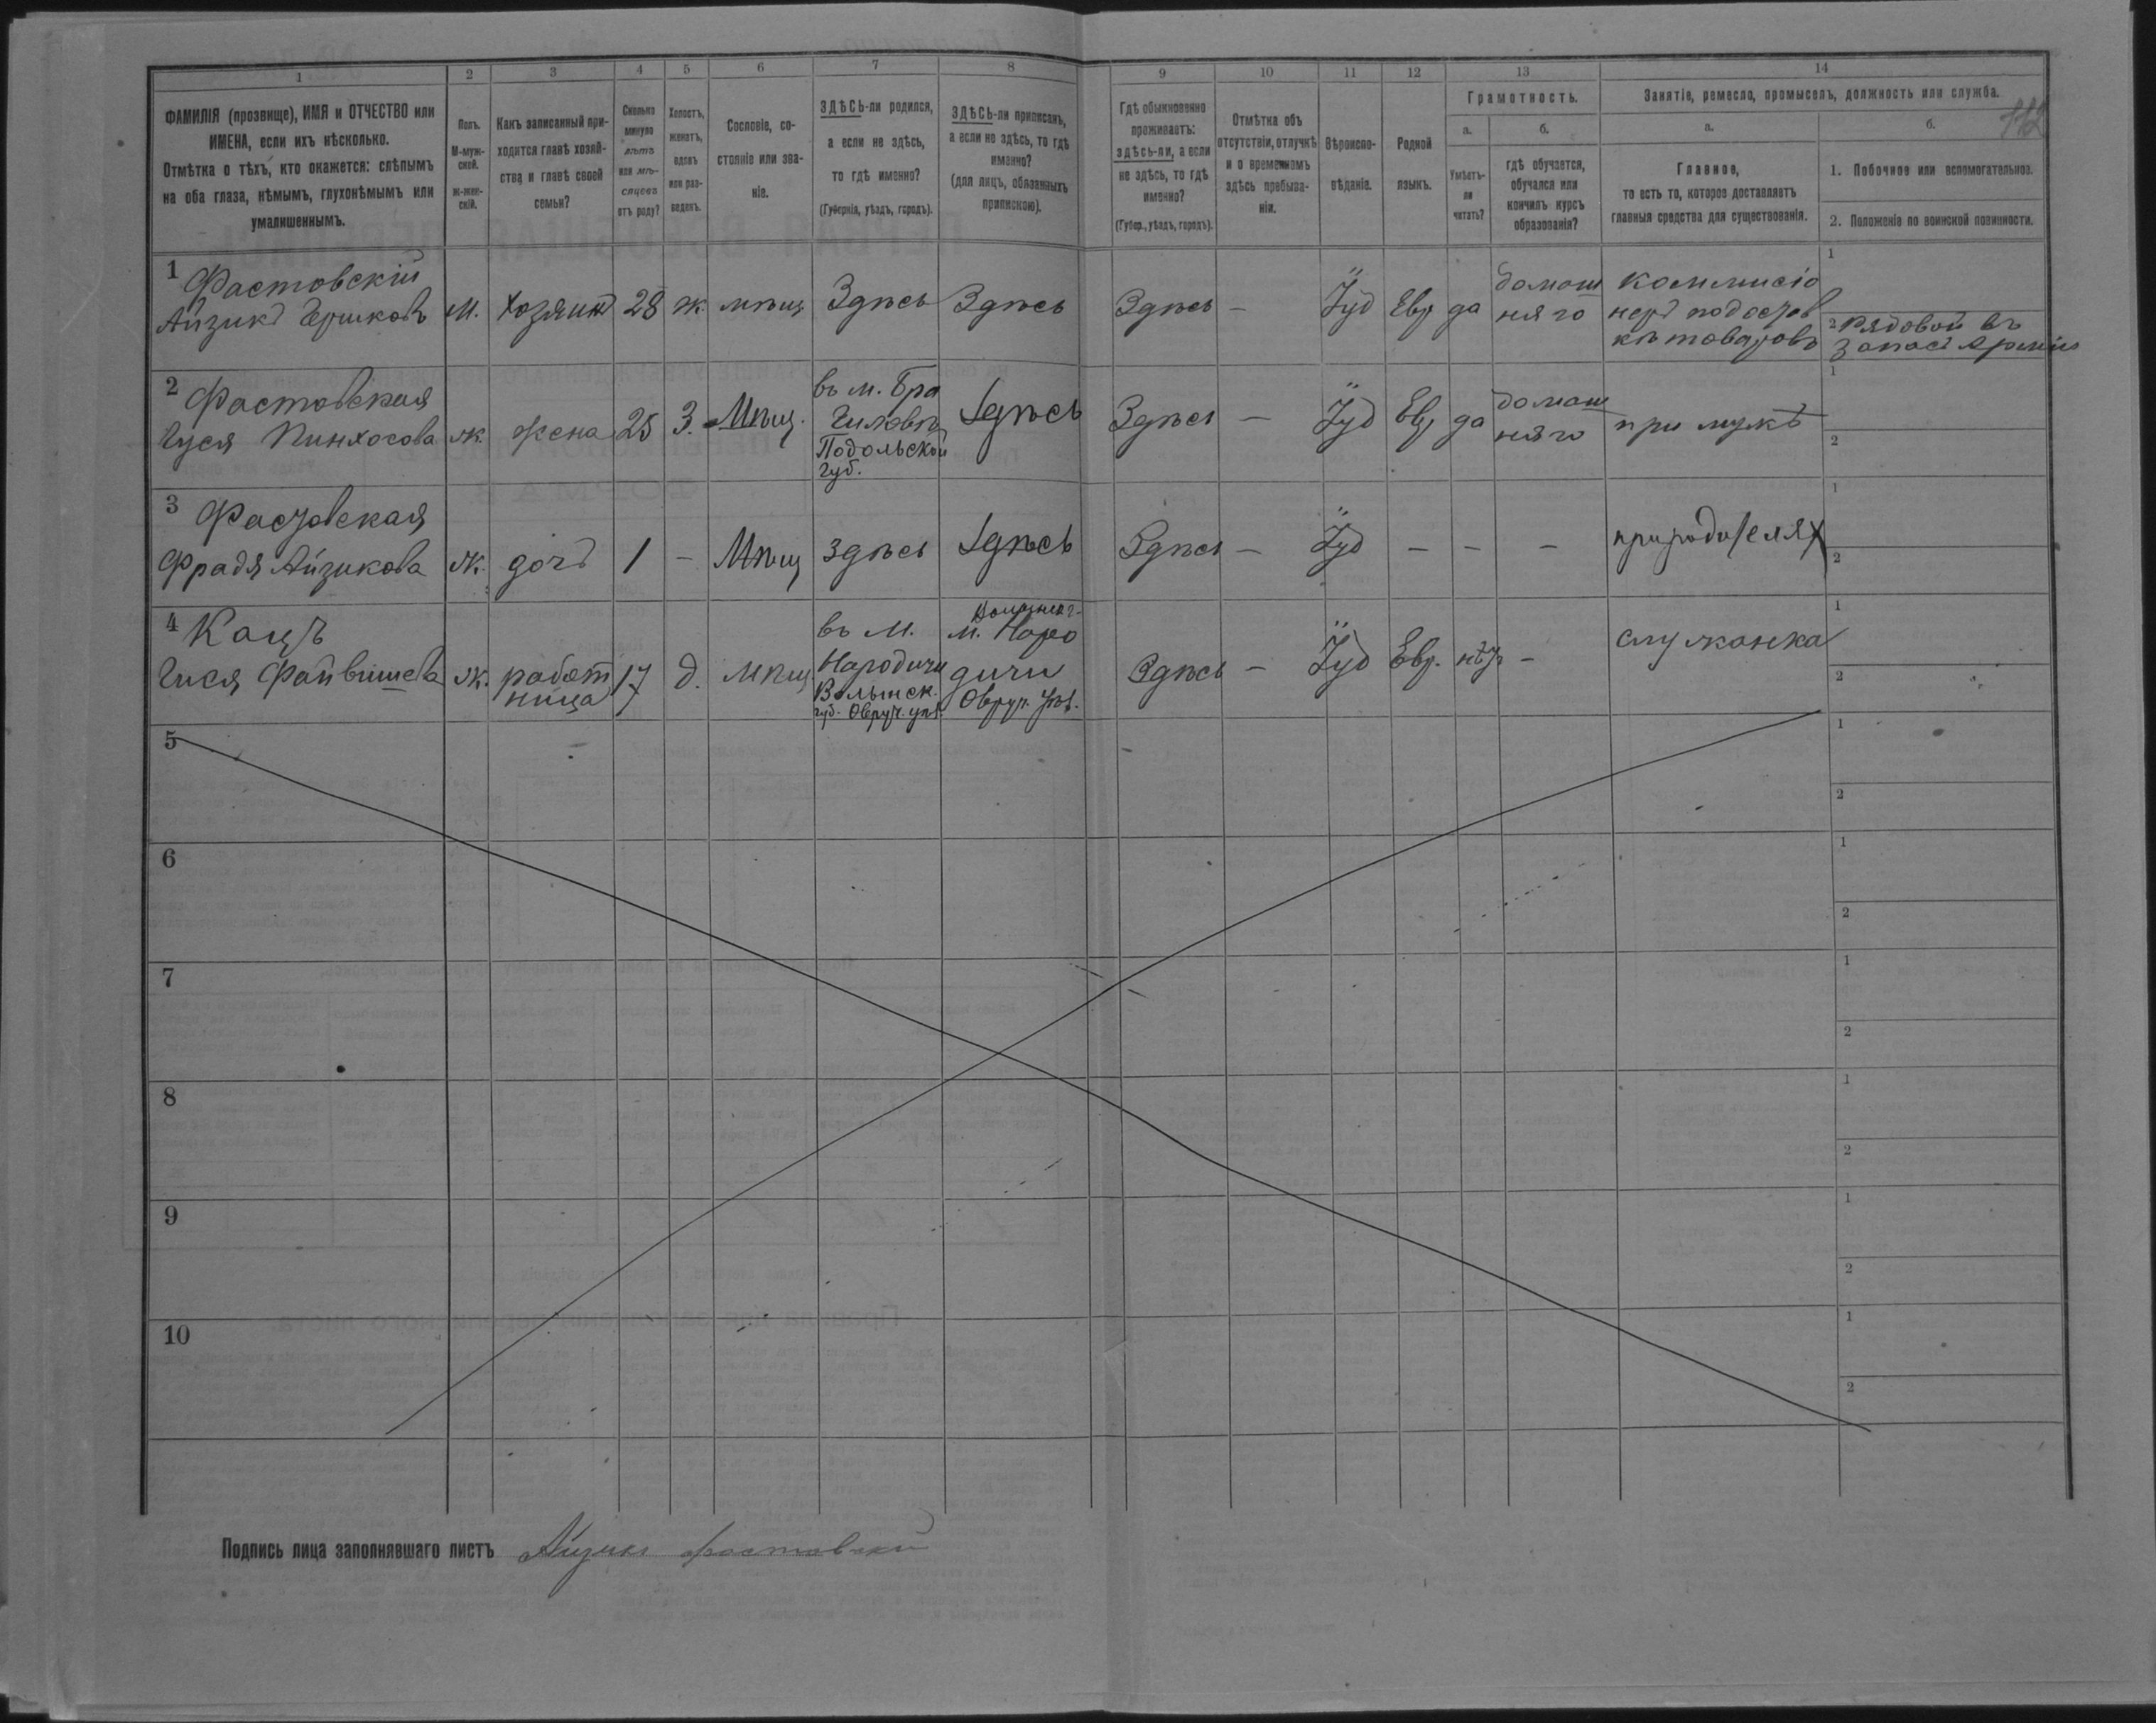 1 2 3 4 5 6 7 8 9 10 11 12 13 14
ФАМИЛІЯ (прозвище), ИМЯ и ОТЧЕСТВО или
ИМЕНА, если ихъ нѣсколько.
Отмѣтка о тѣхъ, кто окажется: слѣпымъ
на оба глаза, нѣмымъ, глухонѣмымъ или
умалишеннымъ.
Полъ.
М-муж-
ской.
Ж-жен-
скій.
Какъ записанный при-
ходится главѣ хозяй-
ства и главѣ своей
семьи?
Сколько
минуло
лѣтъ
или мѣ-
сяцевъ
отъ роду?
Холостъ,
женатъ,
вдовъ
или раз-
веденъ.
Сословіе, со-
стояніе или зва-
ніе.
ЗДѢСЬ-ли родился,
а если не здѣсь,
то гдѣ именно?
(Губернія, уѣздъ, городъ).
ЗДѢСЬ-ли приписанъ,
а если не здѣсь, то гдѣ
именно?
(для лицъ, обязанныхъ
припискою).
Гдѣ обыкновенно
проживаетъ:
здѣсь-ли, а если
не здѣсь, то гдѣ
именно?
(Губер., уѣздъ, городъ).
Отмѣтка объ
отсутствіи, отлучкѣ
и о временномъ
здѣсь пребыва-
ніи.
Вѣроиспо-
вѣданіе.
Родной
языкъ.
Грамотность.
а.
Умѣетъ-
ли
читать?
б.
гдѣ обучается,
обучался или
кончилъ курсъ
образованія?
Занятіе, ремесло, промыселъ, должность или служба.
112
а.
Главное,
то есть то, которое доставляетъ
главныя средства для существованія.
б.
1. Побочное или вспомогательное.
2. Положеніе по воинской повинности.
1 Фастовскій
Айзикъ Ершковъ
М.
хозяинъ
28
ж.
мѣщ
Здѣсь
Здѣсь
Здѣсь
—
Іуд
Евр
да
домаш
няго
коммисіо
неръ
кѣ товаровъ
1
2 Рядовой въ
запасѣ Арміи
2 Фастовская
Гуся Пинхосова
ж.
жена
25
З.
Мѣщ.
въ м. Бра
Подольской
губ.
Здѣсь
Здѣсь
—
Іуд
Евр
да
домаш
няго
при мужѣ
1
2
3 Фастовская
Фрадя Айзикова
ж.
дочь
1
—
Мѣщ
Здѣсь
Здѣсь
Здѣсь
—
Іуд
—
—
—
при родителях
1
2
4 Кацъ
Гися Файвишева
ж.
работ
ница
17
д.
мѣщ
въ м.
Народичи
Волынск.
губ. Овруч. уѣз.
м. Наро
дичи
Овруч. уѣз.
Здѣсь
—
Іуд
Евр.
нѣтъ
—
служанка
1
2
5
1
2
6
1
2
7
1
2
8
1
2
9
1
2
10
1
2
Подпись лица заполнявшаго листъ Айзикъ Фастовскій